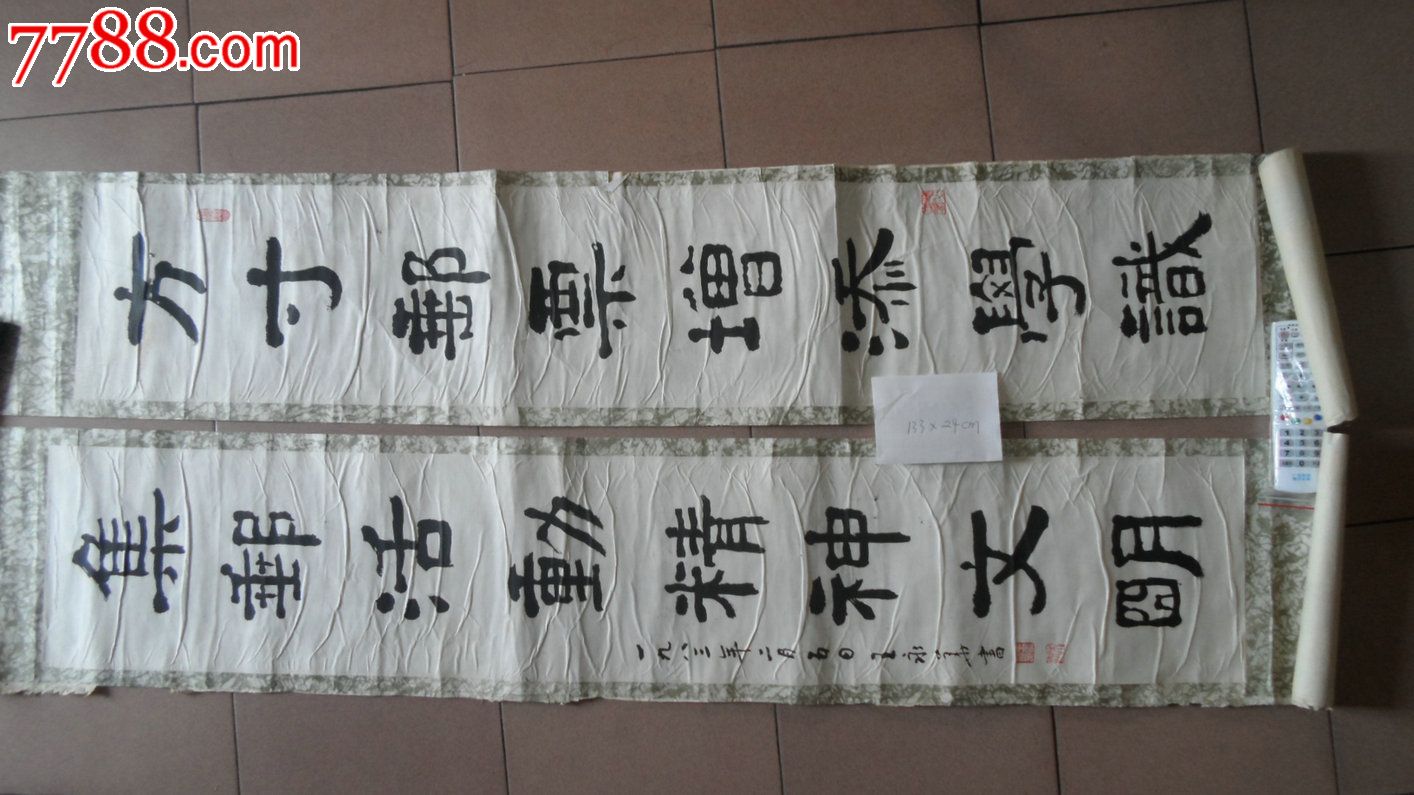 7788.com
方寸郵票增添學識
133×24cm
集郵活動精神文明
一九八三年二月五日 王 書